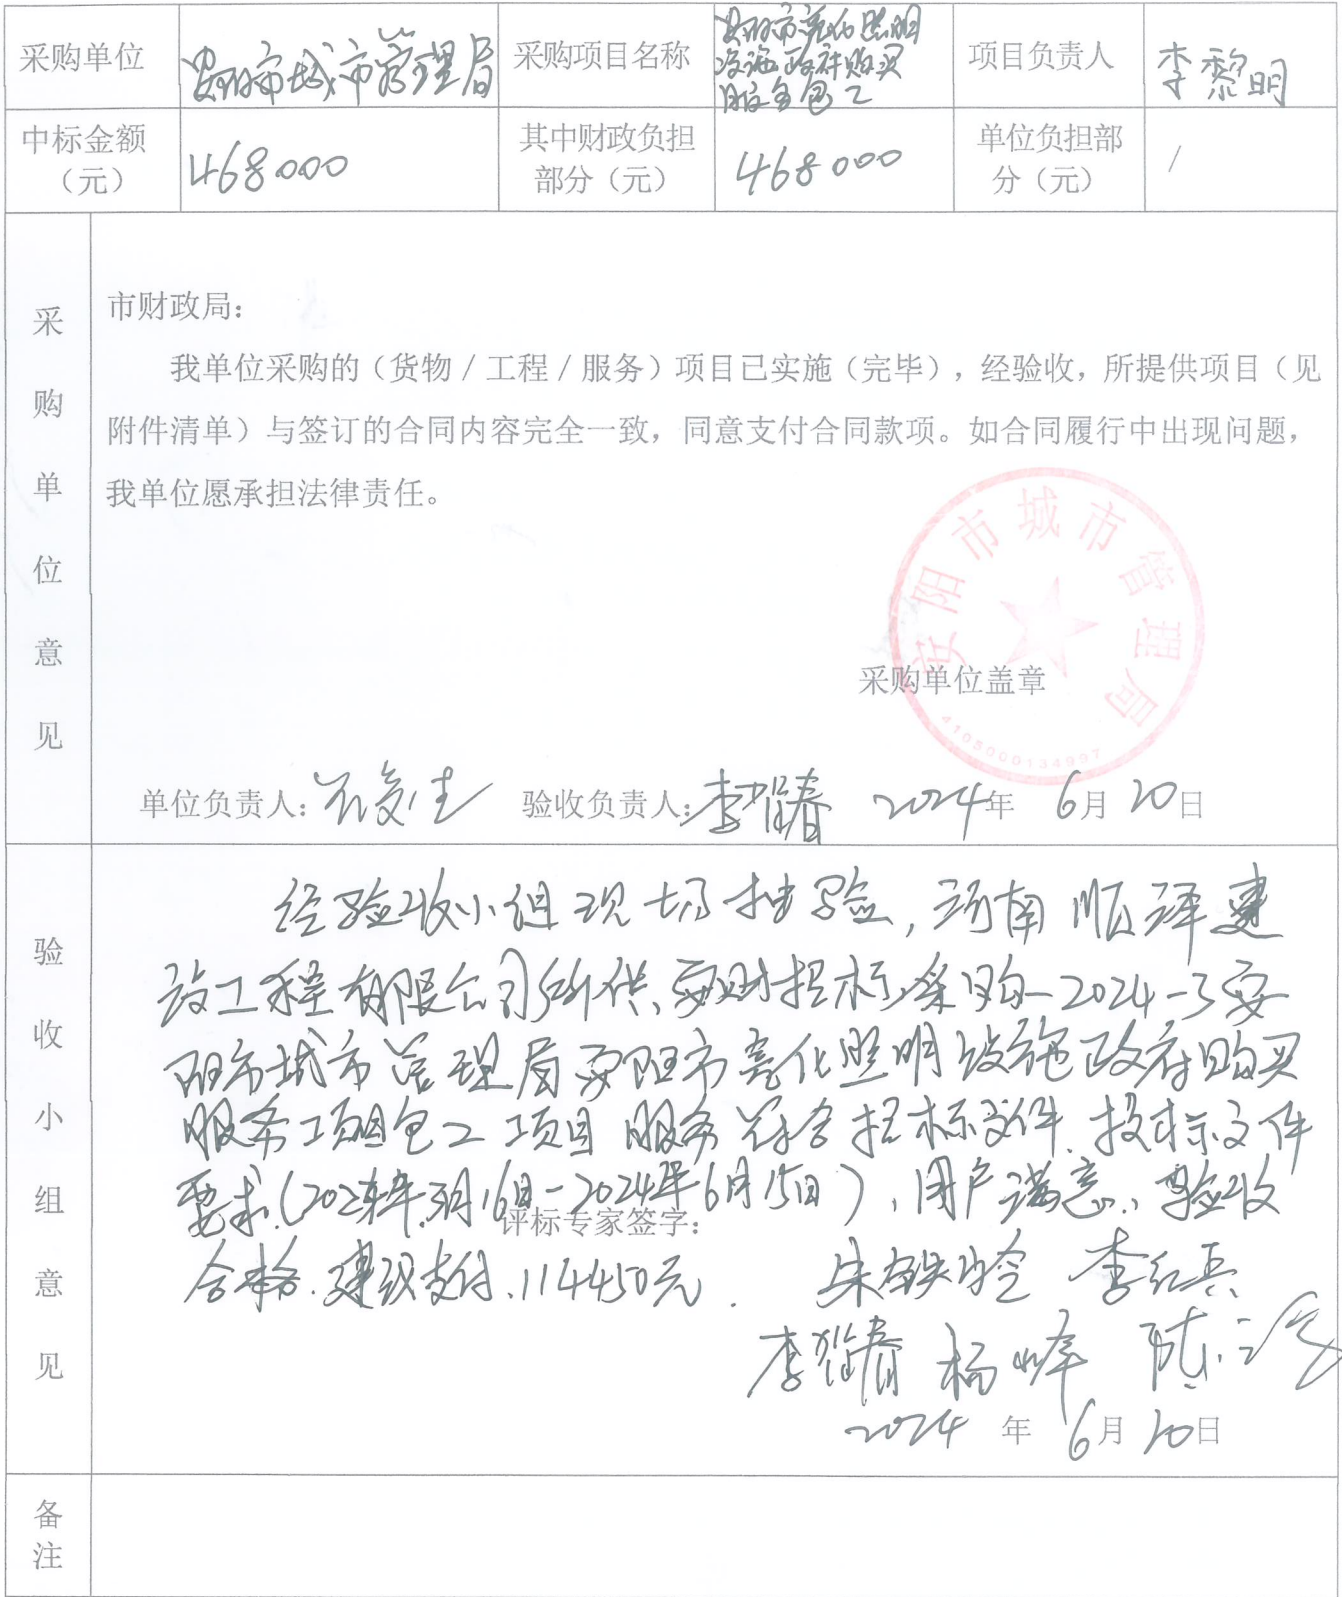 采购单位 安阳市城市管理局 采购项目名称 安阳市亮化照明设施政府购买服务包2 项目负责人 李黎明
中标金额（元） 468000 其中财政负担部分（元） 468000 单位负担部分（元） /
采购单位意见
市财政局：
我单位采购的（货物／工程／服务）项目已实施（完毕），经验收，所提供项目（见
附件清单）与签订的合同内容完全一致，同意支付合同款项。如合同履行中出现问题，
我单位愿承担法律责任。
安阳市城市管理局
4105000134997
采购单位盖章
单位负责人： 验收负责人： 2024年 6月 20日
验收小组意见
经验收小组现场抽验，河南顺泽建
设工程有限公司所供、安财招标采购-2024-3安
阳市城市管理局安阳市亮化照明设施政府购买
服务项目包2项目服务符合招标文件、投标文件
要求（2024年3月16日-2024年6月15日），用户满意，验收
评标专家签字：
合格.建议支付.114450元. 李红兵
杨峰
2024 年 6月 20日
备注